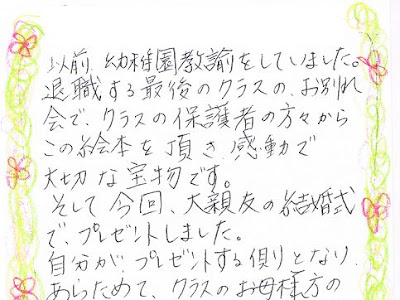 以前、幼稚園教諭をしていました。
退職する最後のクラスの、お別れ
会で、クラスの保護者の方々から
この絵本を頂き感動で
大切な宝物です。
そして今回、大親友の結婚式
で、プレゼントしました。
自分が、プレゼントする側となり、
あらためて、クラスのお母様方の